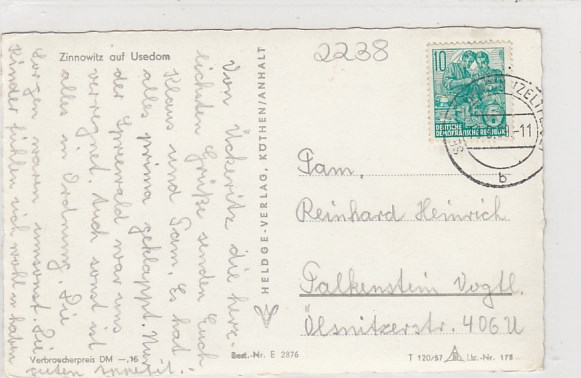 Zinnowitz auf Usedom
Von Ückeritz die herz-
lichsten Grüße senden Euch
Klaus und Fam. Es hat
alles prima geklappt. Nur
der Spreewald war uns
verregnet. Auch sonst ist
alles in Ordnung. Die
Sorgen waren umsonst. Die
Kinder fühlen sich wohl u. haben
guten Appetit.
Verbraucherpreis DM —,16
HELDGE-VERLAG, KÖTHEN/ANHALT
Best.-Nr. E 2876
2238
10
DEUTSCHE
DEMOKRATISCHE REPUBLIK
-11
b
Fam.
Reinhard Heinrich
Falkenstein Vogtl.
Ölsnitzerstr. 406 U
T 120/57 Liz.-Nr. 178